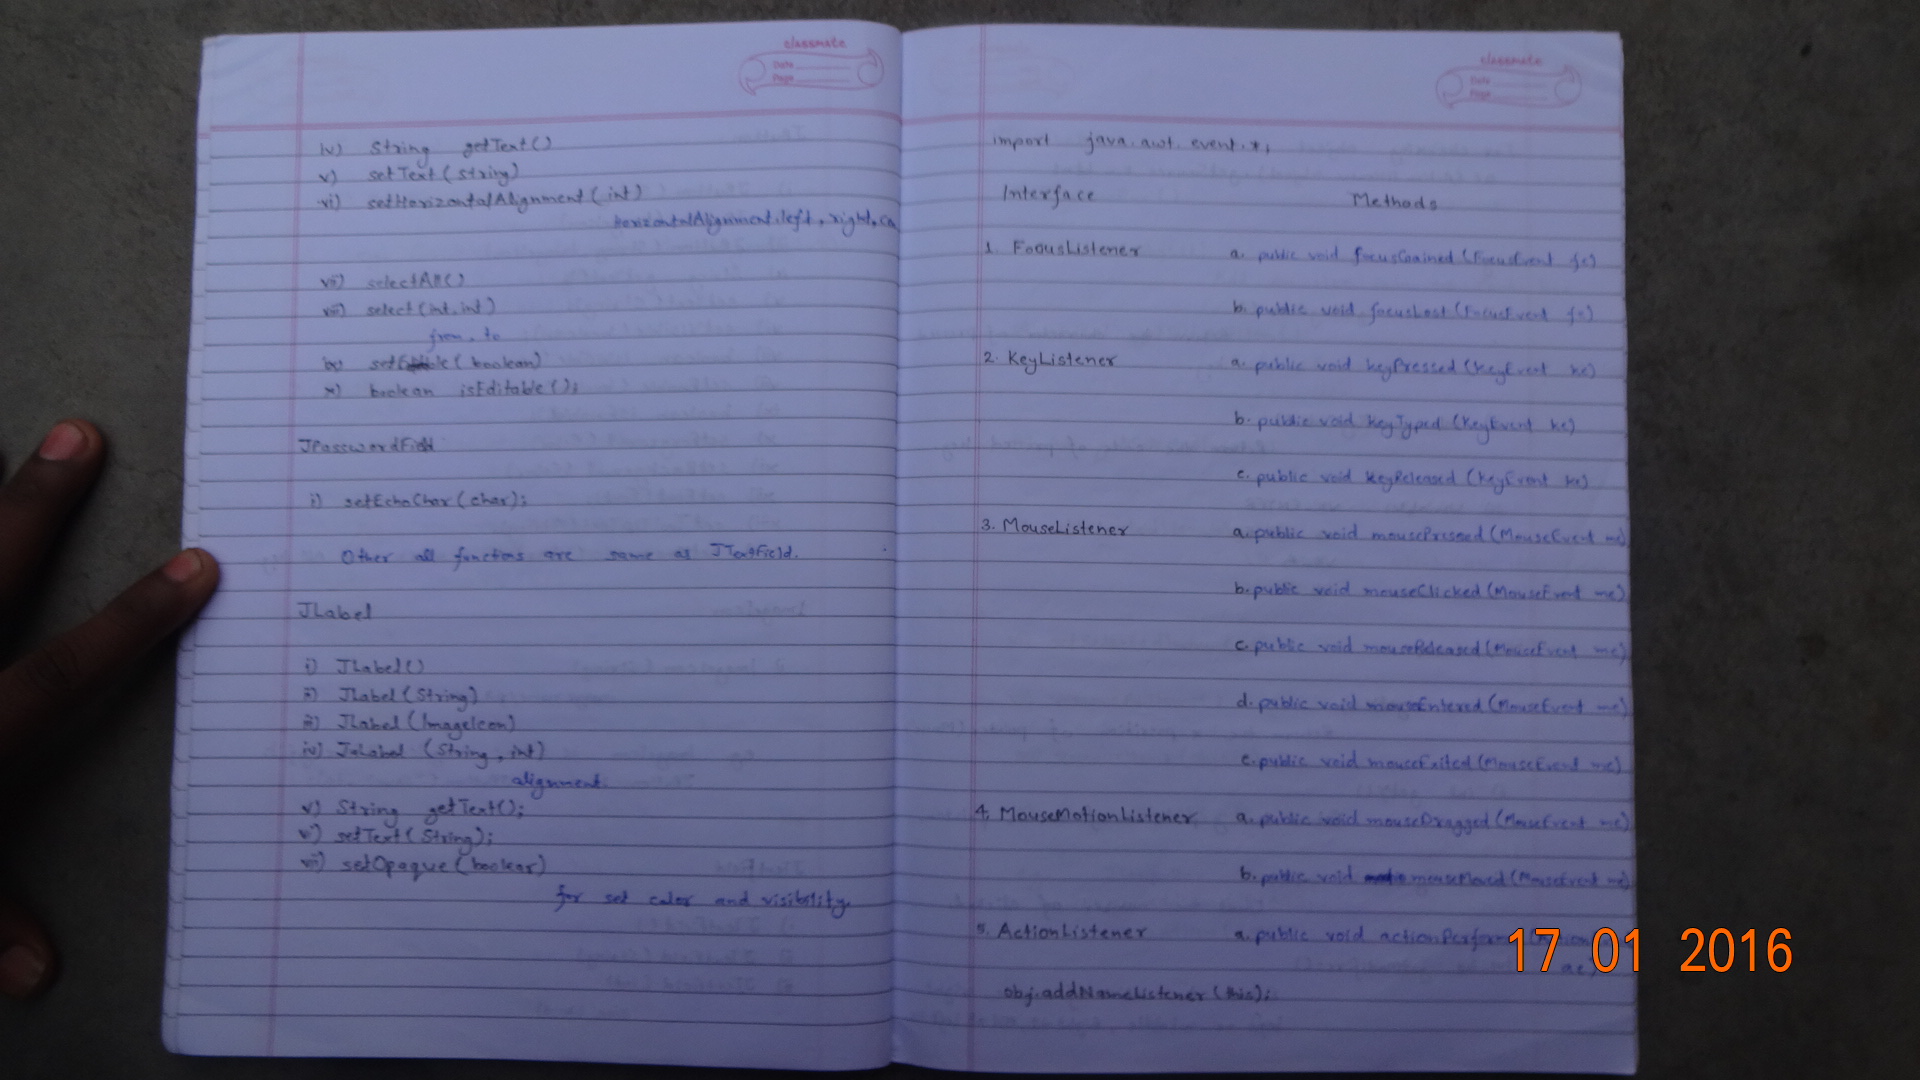 classmate
Date
Page
iv) String getText()
v) setText(string)
vi) setHorizontalAlignment(int)
HorizontalAlignment.left, right, ce
vii) selectAll()
viii) select(int, int)
from, to
ix) set (boolean)
x) boolean isEditable();
JPasswordField
i) setEchoChar(char);
Other all functions are same as JTextField.
JLabel
i) JLabel()
ii) JLabel(String)
iii) JLabel(ImageIcon)
iv) JLabel (String, int)
alignment.
v) String getText();
vi) setText(String);
vii) setOpaque(boolean)
for set color and visibility.
classmate
Date
Page
import java.awt.event.*;
Interface Methods
1. FocusListener a. public void focusGained (FocusEvent fe)
b. public void focusLost (FocusEvent fe)
2. KeyListener a. public void keyPressed (KeyEvent ke)
b. public void keyTyped (KeyEvent ke)
c. public void keyReleased (KeyEvent ke)
3. MouseListener a. public void mousePressed (MouseEvent me)
b. public void mouseClicked (MouseEvent me)
c. public void mouseReleased (MouseEvent me)
d. public void mouseEntered (MouseEvent me)
e. public void mouseExited (MouseEvent me)
4. MouseMotionListener a. public void mouseDragged (MouseEvent me)
b. public void mouseMoved (MouseEvent me)
5. ActionListener a. public void
ae)
obj.addNameListener(this);
17 01 2016